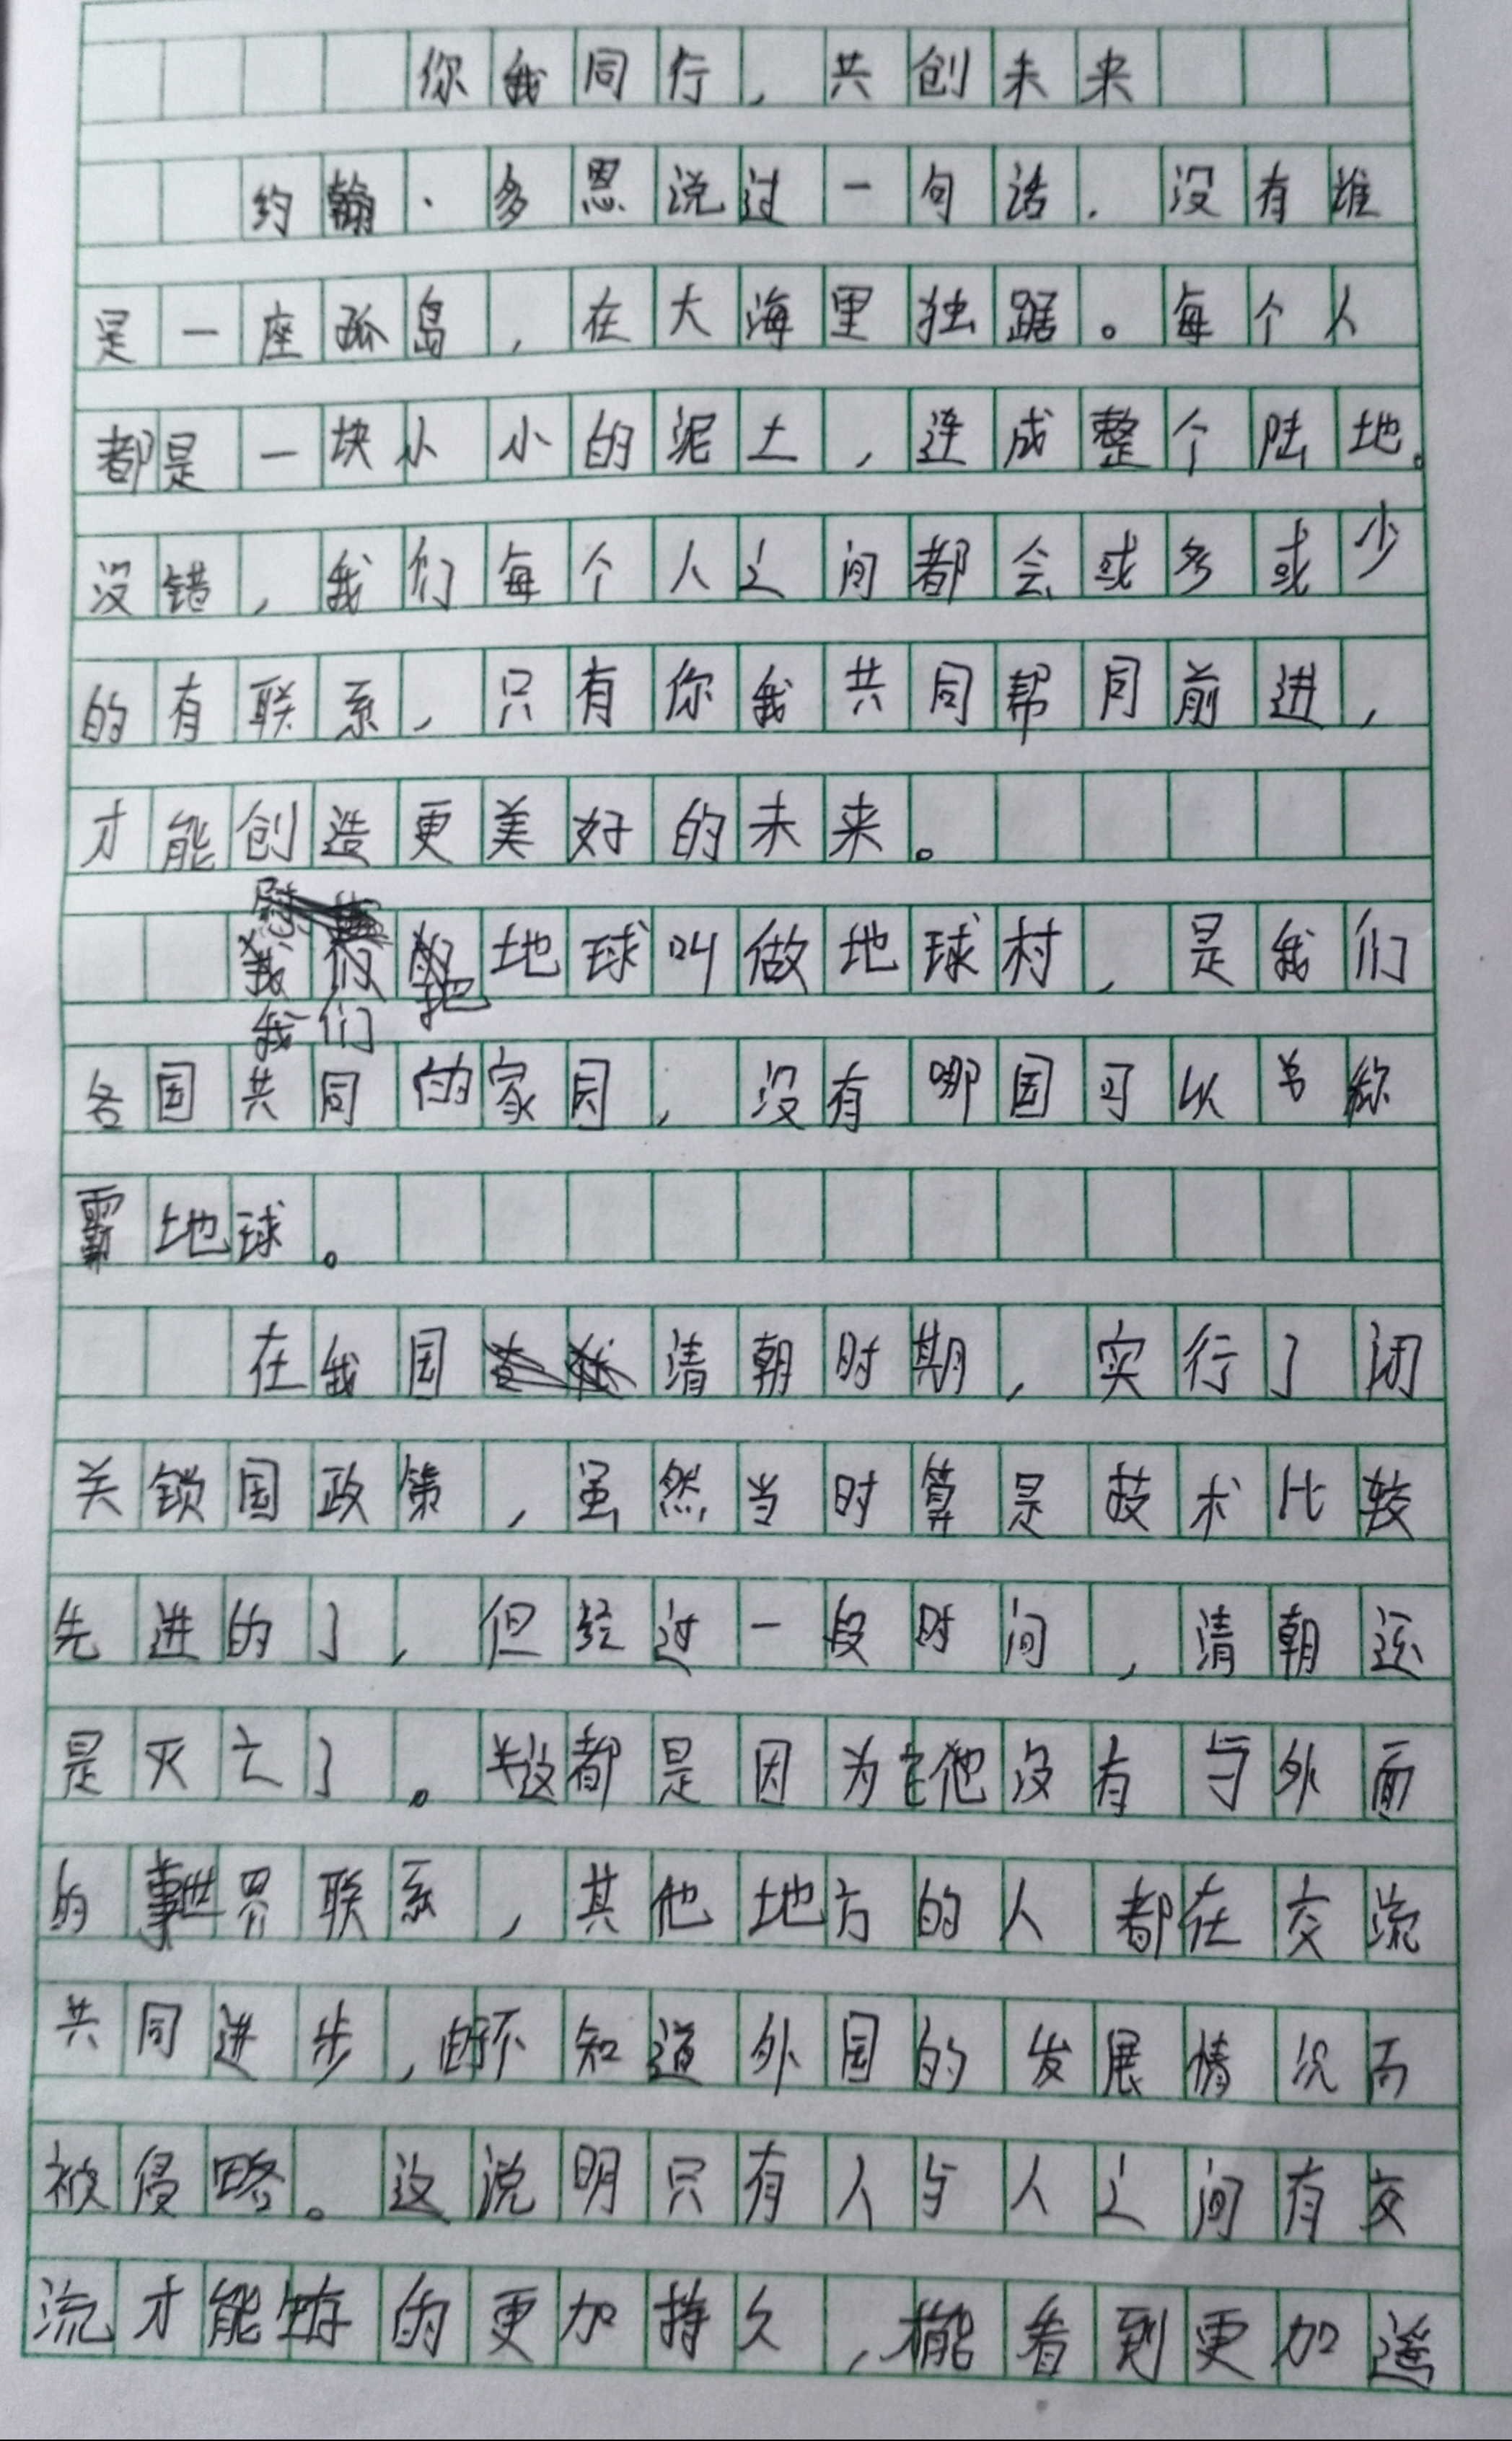 你我同行，共创未来
约翰·多恩说过一句话．没有谁
是一座孤岛，在大海里独踞。每个人
都是一块小小的泥土，连成整个陆地。
没错，我们每个人之间都会或多或少
的有联系，只有你我共同帮同前进，
才能创造更美好的未来。
我们把地球叫做地球村，是我们
各国共同的家园，没有哪国可以称
霸地球。
在我国清朝时期，实行了闭
关锁国政策，虽然当时算是技术比较
先进的了，但经过一段时间，清朝还
是灭亡了。这都是因为他没有与外面
的世界联系，其他地方的人都在交流
共同进步，不知道外国的发展情况而
被侵略。这说明只有人与人之间有交
流才能生存的更加持久，能看到更加遥